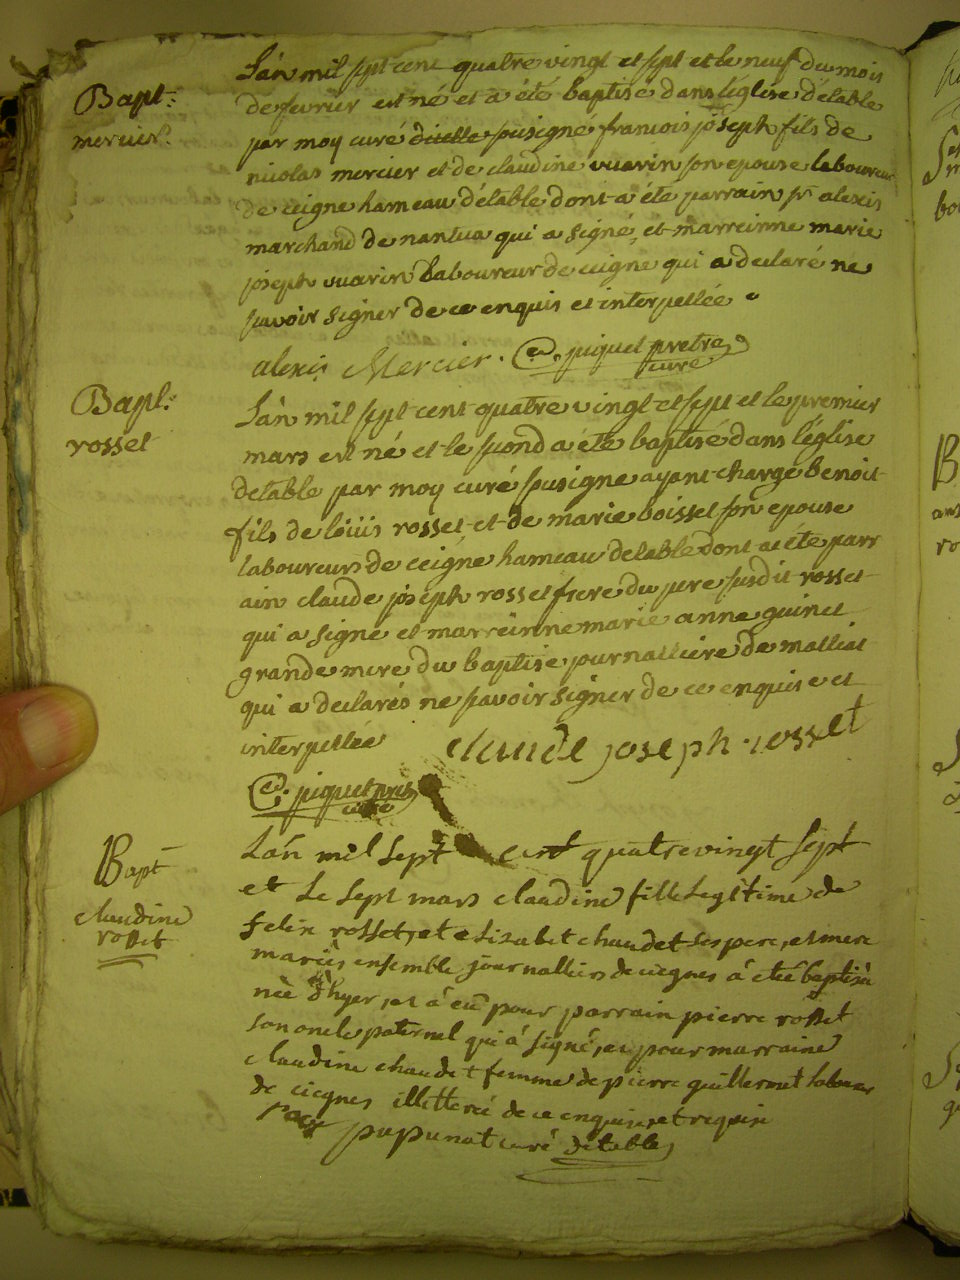 Bapt:
mercier.
L'an mil sept cent quatre vingt et sept et le neuf du mois
de fevrier est né et a été baptisé dans l'église détable
par moy curé dicelle sousigné francois joseph fils de
nicolas mercier et de claudine vuarin son epouse laboureur
de ceigne hameau d'étable dont a été parrain sr alexis
marchand de nantua qui a signé, et marreinne marie
joseph vuarin laboureur de ceigne qui a declaré ne
savoir signer de ce enquis et interpellée
alexis Mercier. piquet pretre
curé
Bapt:
rosset
L'an mil sept cent quatre vingt et sept et le premier
mars est né et le second a été baptisé dans l'église
detable par moy curé sousigne ayant charge benoit
fils de loüis rosset et de marie boisset son epouse
laboureurs de ceigne hameau detable dont a été parr
ain claude joseph rosset frere du pere susdit rosset
qui a signé et marreinne marie anne guinet
grande mere du baptisé journalliere de
qui a declarés ne savoir signer de ce enquise et
interpellée claude joseph rosset
piquet pretre
curé
Bapt
claudine
rosset
L'an mil sept cent quatre vingt sept
et le sept mars claudine fille legitime de
felix rosset, et elizabet chaudet ses pere, et mere
mariés ensemble journalliers de ciegnes à eté baptisée
née d'hyer, et à eû pour parrain pierre rosset
son oncle paternel qui à signé, et pour marraine
claudine chaudet femme de pierre guillermet
de ciegnes illetteré de ce enquise, et requise
pupunat curé d'etables